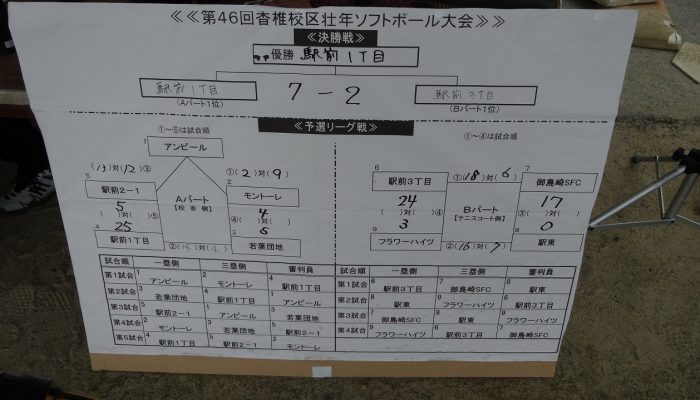 ≪≪第46回香椎校区壮年ソフトボール大会≫≫
≪決勝戦≫
優勝 駅前1丁目
駅前1丁目
7 - 2
駅前3丁目
(Aパート1位)
(Bパート1位)
≪予選リーグ戦≫
①~⑤は試合順
1
アンピール
(13)対(12)③
①(2)対(9)
5
駅前2-1
Aパート
【校舎側】
2
モントーレ
5
( )対( )⑤
25
4
④( )対( )
5
4
駅前1丁目
3
若葉団地
②( )対( )
①~④は試合順
6
駅前3丁目
①(18)対(6)
7
御島崎SFC
24
( )対( )④
3
Bパート
【テニスコート側】
17
③( )対( )
0
9
フラワーハイツ
②(16)対(7)
8
駅東
試合順 一塁側 三塁側 審判員
第1試合 1 アンピール 2 モントーレ 4 駅前1丁目
第2試合 3 若葉団地 4 駅前1丁目 1 アンピール
第3試合 5 駅前2-1 1 アンピール 3 若葉団地
第4試合 2 モントーレ 3 若葉団地 5 駅前2-1
第5試合 4 駅前1丁目 5 駅前2-1 2 モントーレ
試合順 一塁側 三塁側 審判員
第1試合 6 駅前3丁目 7 御島崎SFC 8 駅東
第2試合 8 駅東 9 フラワーハイツ 6 駅前3丁目
第3試合 7 御島崎SFC 8 駅東 9 フラワーハイツ
第4試合 9 フラワーハイツ 6 駅前3丁目 7 御島崎SFC